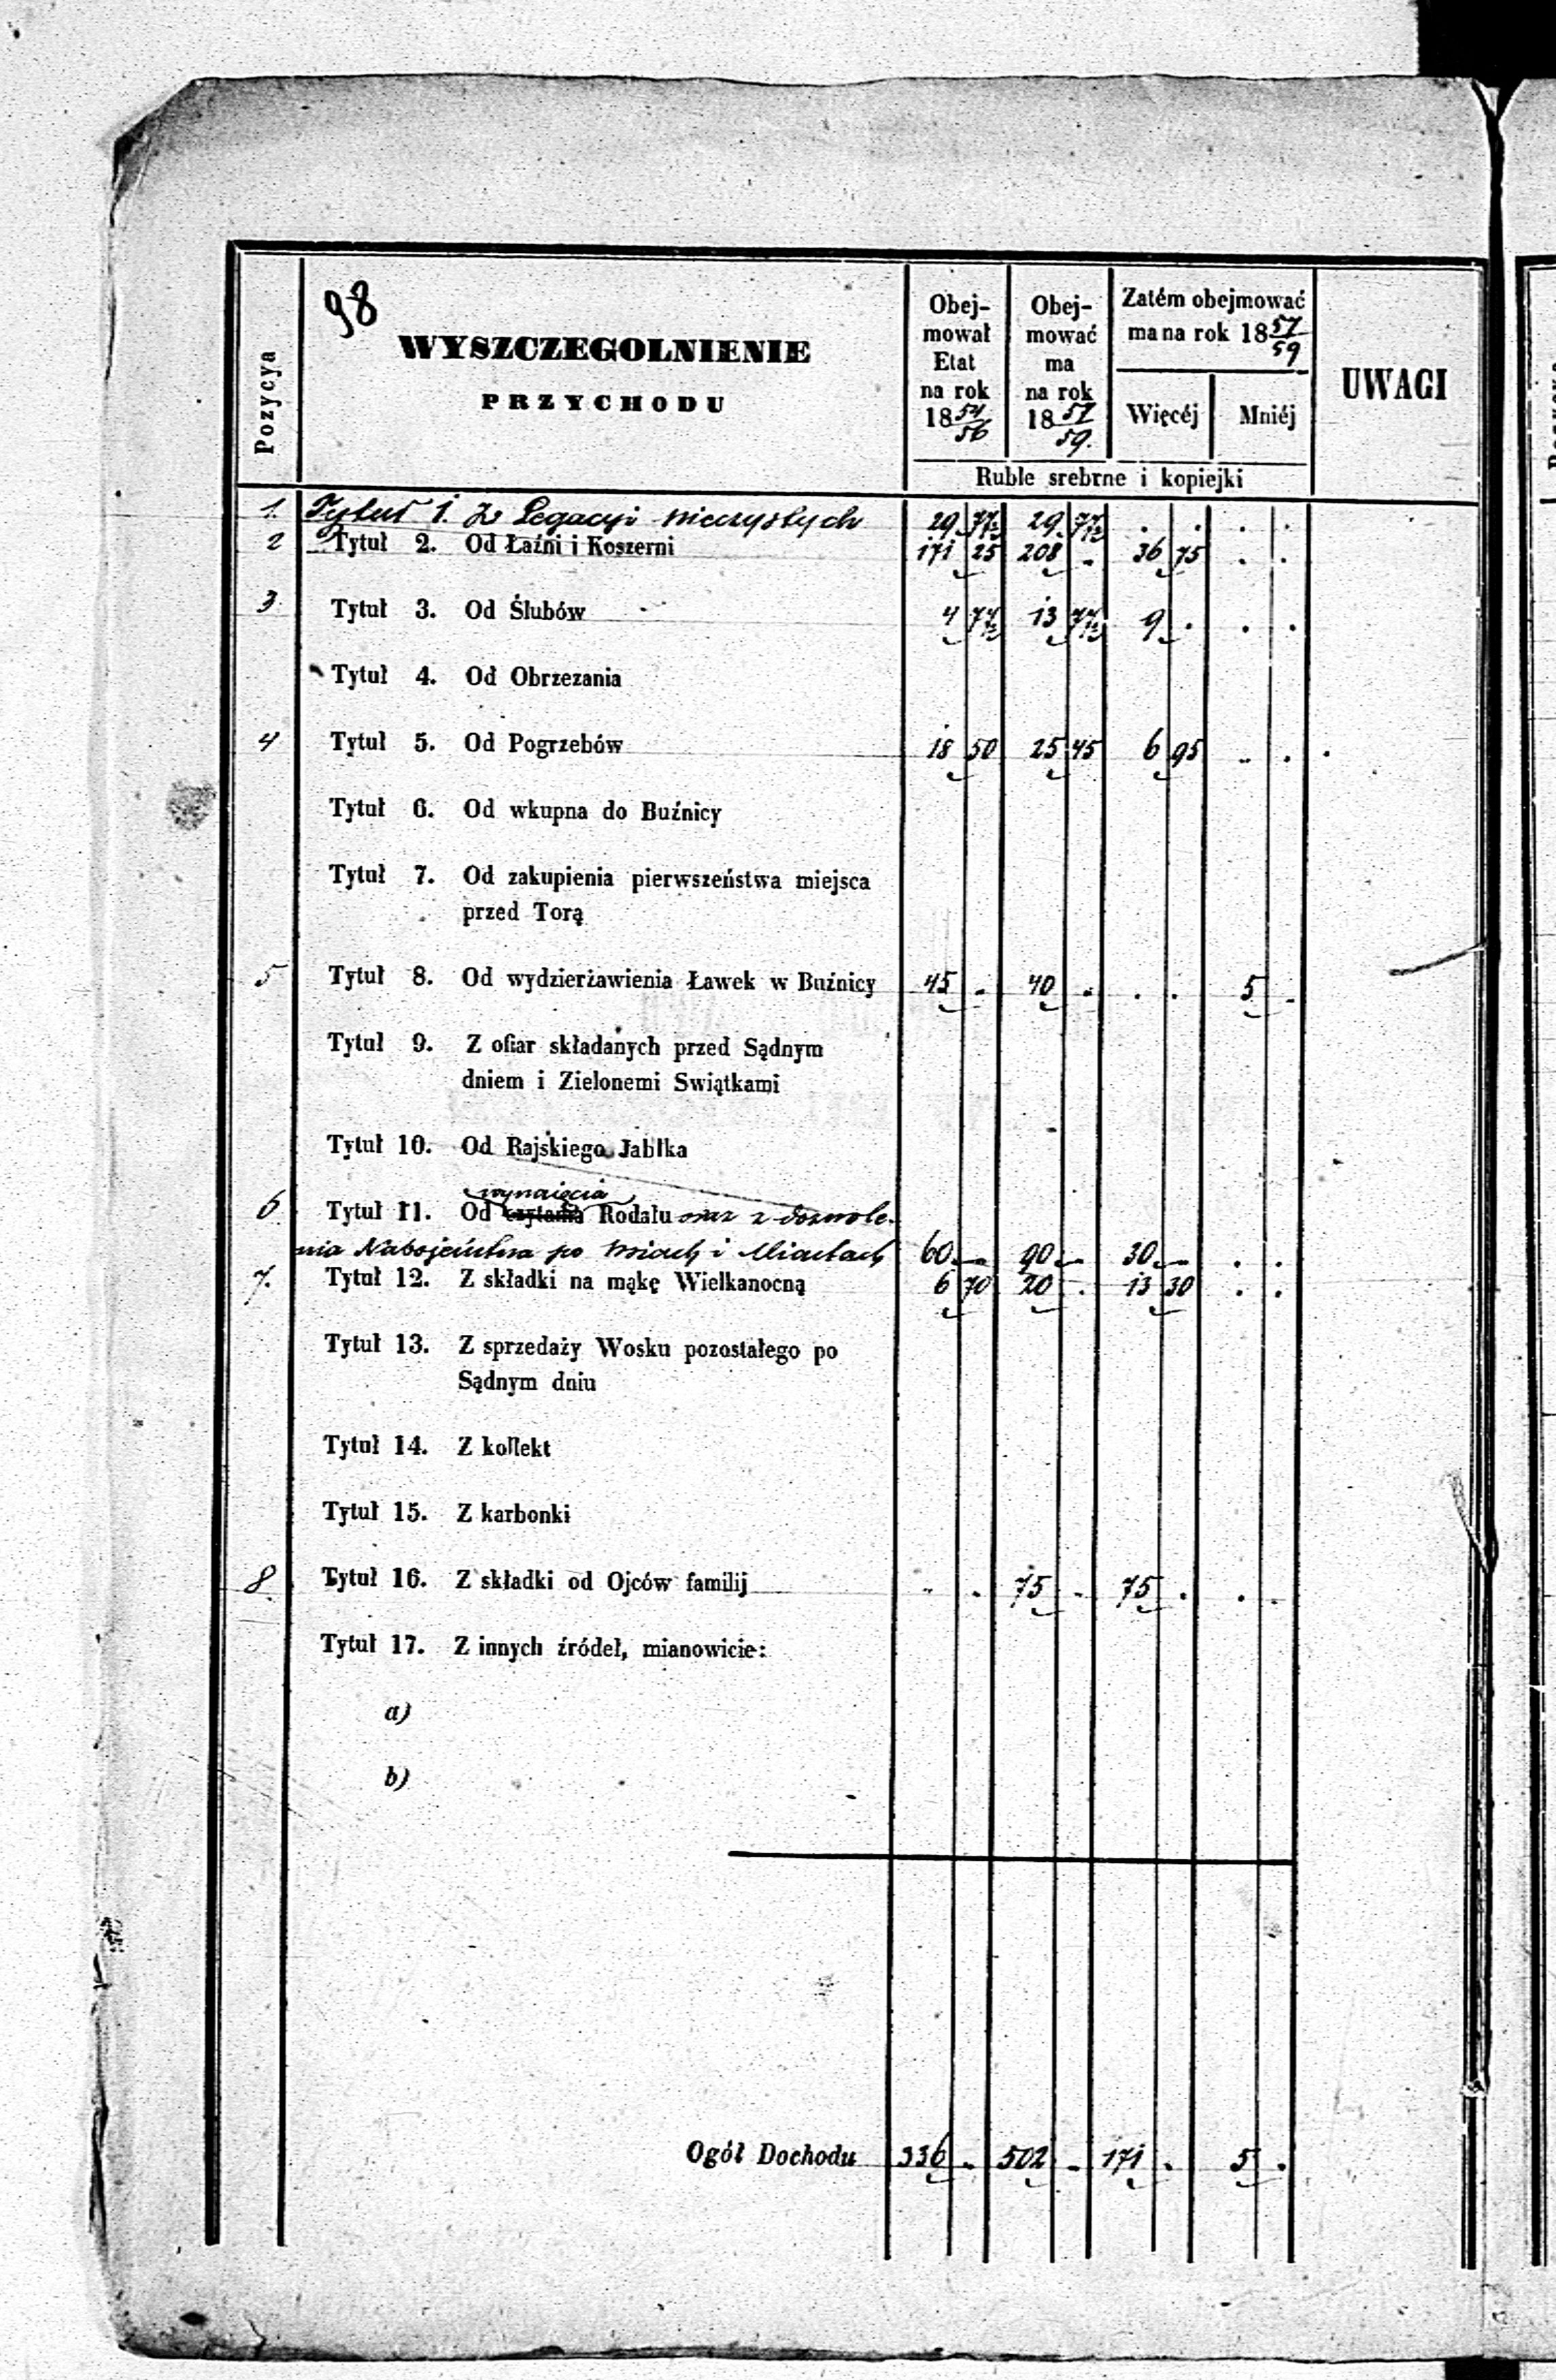 98
Pozycya
WYSZCZEGOLNIENIE
PRZYCHODU
Obej-
mował
Etat
na rok
18 54/56
Obej-
mować
ma
na rok
18 57/59.
Zatém obejmować
ma na rok 18 57/59
Więcéj
Mniéj
Ruble srebrne i kopiejki
UWAGI
1. Tytuł 1. Z Legacyi wieczystych 29 77½ 29 77½ . . . .
2 Tytuł 2. Od Łaźni i Koszerni 171 25 208 - 36 75 . .
3. Tytuł 3. Od Ślubów 4 77½ 13 77½ 9 . . .
Tytuł 4. Od Obrzezania
4 Tytuł 5. Od Pogrzebów 18 50 25 45 6 95 . .
Tytuł 6. Od wkupna do Buźnicy
Tytuł 7. Od zakupienia pierwszeństwa miejsca
przed Torą
5 Tytuł 8. Od wydzierżawienia Ławek w Buźnicy 45 - 40 - . . 5 -
Tytuł 9. Z ofiar składanych przed Sądnym
dniem i Zielonemi Swiątkami
Tytuł 10. Od Rajskiego Jabłka
wynaięcia
6 Tytuł 11. Od czytania Rodału oraz z dozwole-
nia Nabożeństwa po Wsiach i Miastach 60 - 90 - 30 - . .
7. Tytuł 12. Z składki na mąkę Wielkanocną 6 70 20 . 13 30 . .
Tytuł 13. Z sprzedaży Wosku pozostałego po
Sądnym dniu
Tytuł 14. Z kollekt
Tytuł 15. Z karbonki
8. Tytuł 16. Z składki od Ojców familij - . 75 - 75 . . .
Tytuł 17. Z innych źródeł, mianowicie:
a)
b)
Ogół Dochodu 336 - 502 - 171 . 5 .